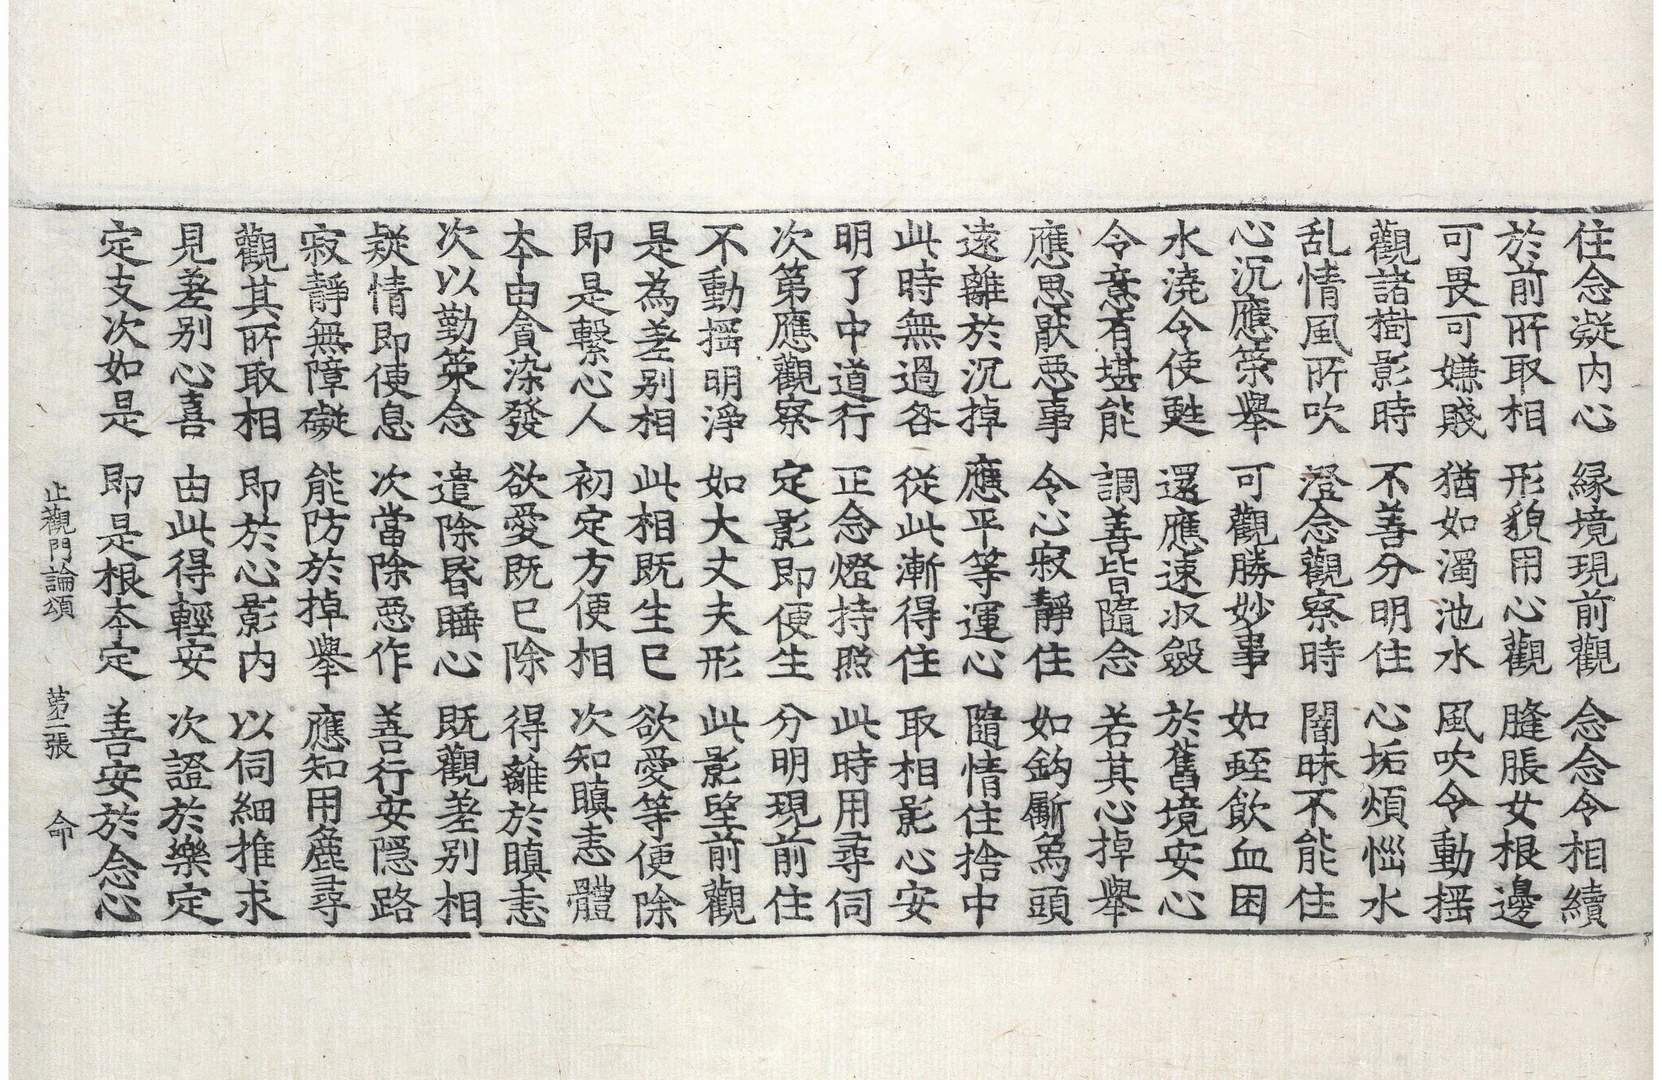 住念凝内心 緣境現前觀 念念令相續
於前所取相 形貌用心觀 膖脹女根邊
可畏可嫌賤 猶如濁池水 風吹令動揺
觀諸樹影時 不善分明住 心垢煩惱水
乱情風所吹 澄念觀察時 闇昧不能住
心沉應策舉 可觀勝妙事 如蛭飲血困
水澆令使甦 還應速収斂 於舊境安心
令意有堪能 調善皆隨念 若其心掉舉
應思猒惡事 令心寂靜住 如鉤斸爲頭
遠離於沉掉 應平等運心 隨情住捨中
此時無過咎 從此漸得住 取相影心安
明了中道行 正念燈持照 此時用尋伺
次第應觀察 定影即便生 分明現前住
不動揺明淨 如大丈夫形 此影堅前觀
是為差别相 此相既生已 欲愛等便除
即是繫心人 初定方便相 次知瞋恚體
本由貪染發 欲愛既已除 得離於瞋恚
次以勤策念 遣除昏睡心 既觀差别相
疑情即便息 次當除惡作 善行安隱路
寂靜無障礙 能防於掉舉 應知用麁尋
觀其所取相 即於心影内 以伺細推求
見差别心喜 由此得輕安 次證於樂定
定支次如是 即是根本定 善安於念心
止觀門論頌 第二張 命